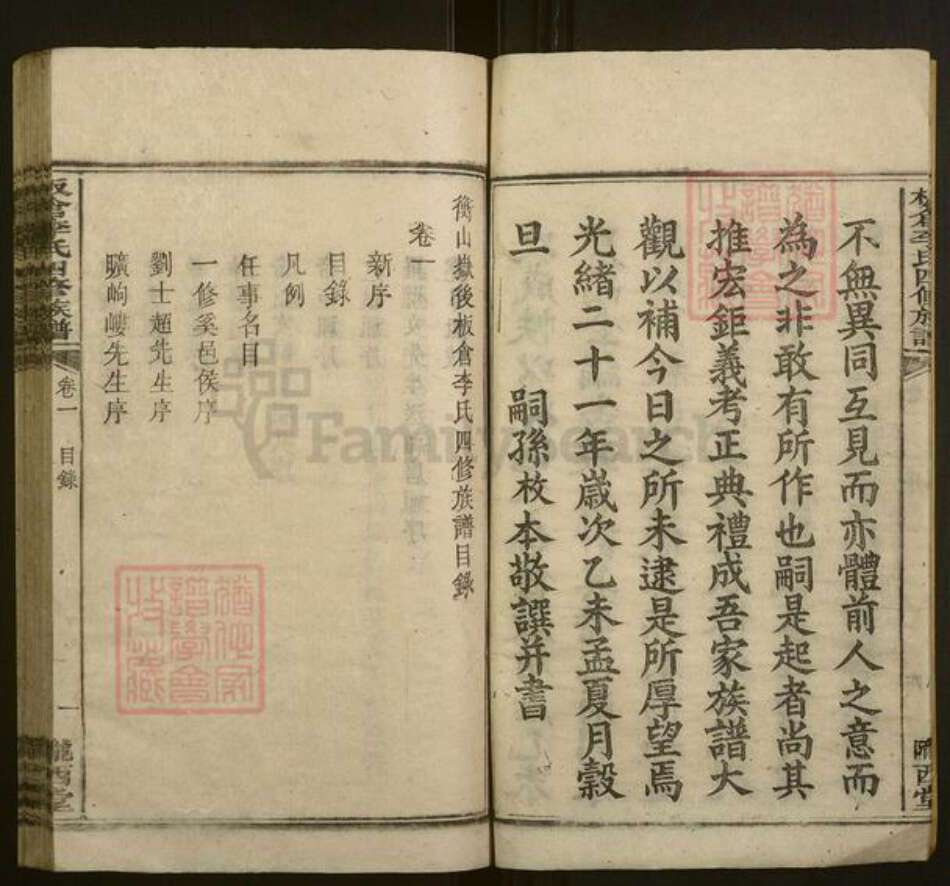 不無異同互見而亦體前人之意而
為之非敢有所作也嗣是起者尚其
推宏鉅義考正典禮成吾家族譜大
觀以補今日之所未逮是所厚望焉
光緒二十一年歲次乙未孟夏月穀
旦　嗣孫枚本敬譔并書
隴西堂
衡山嶽後板倉李氏四修族譜目錄
卷一
新序
目錄
凡例
任事名目
一修奚邑侯序
劉士超先生序
曠岣嶁先生序
板倉李氏四修族譜
卷一　目錄
一
隴西堂
FamilySearch